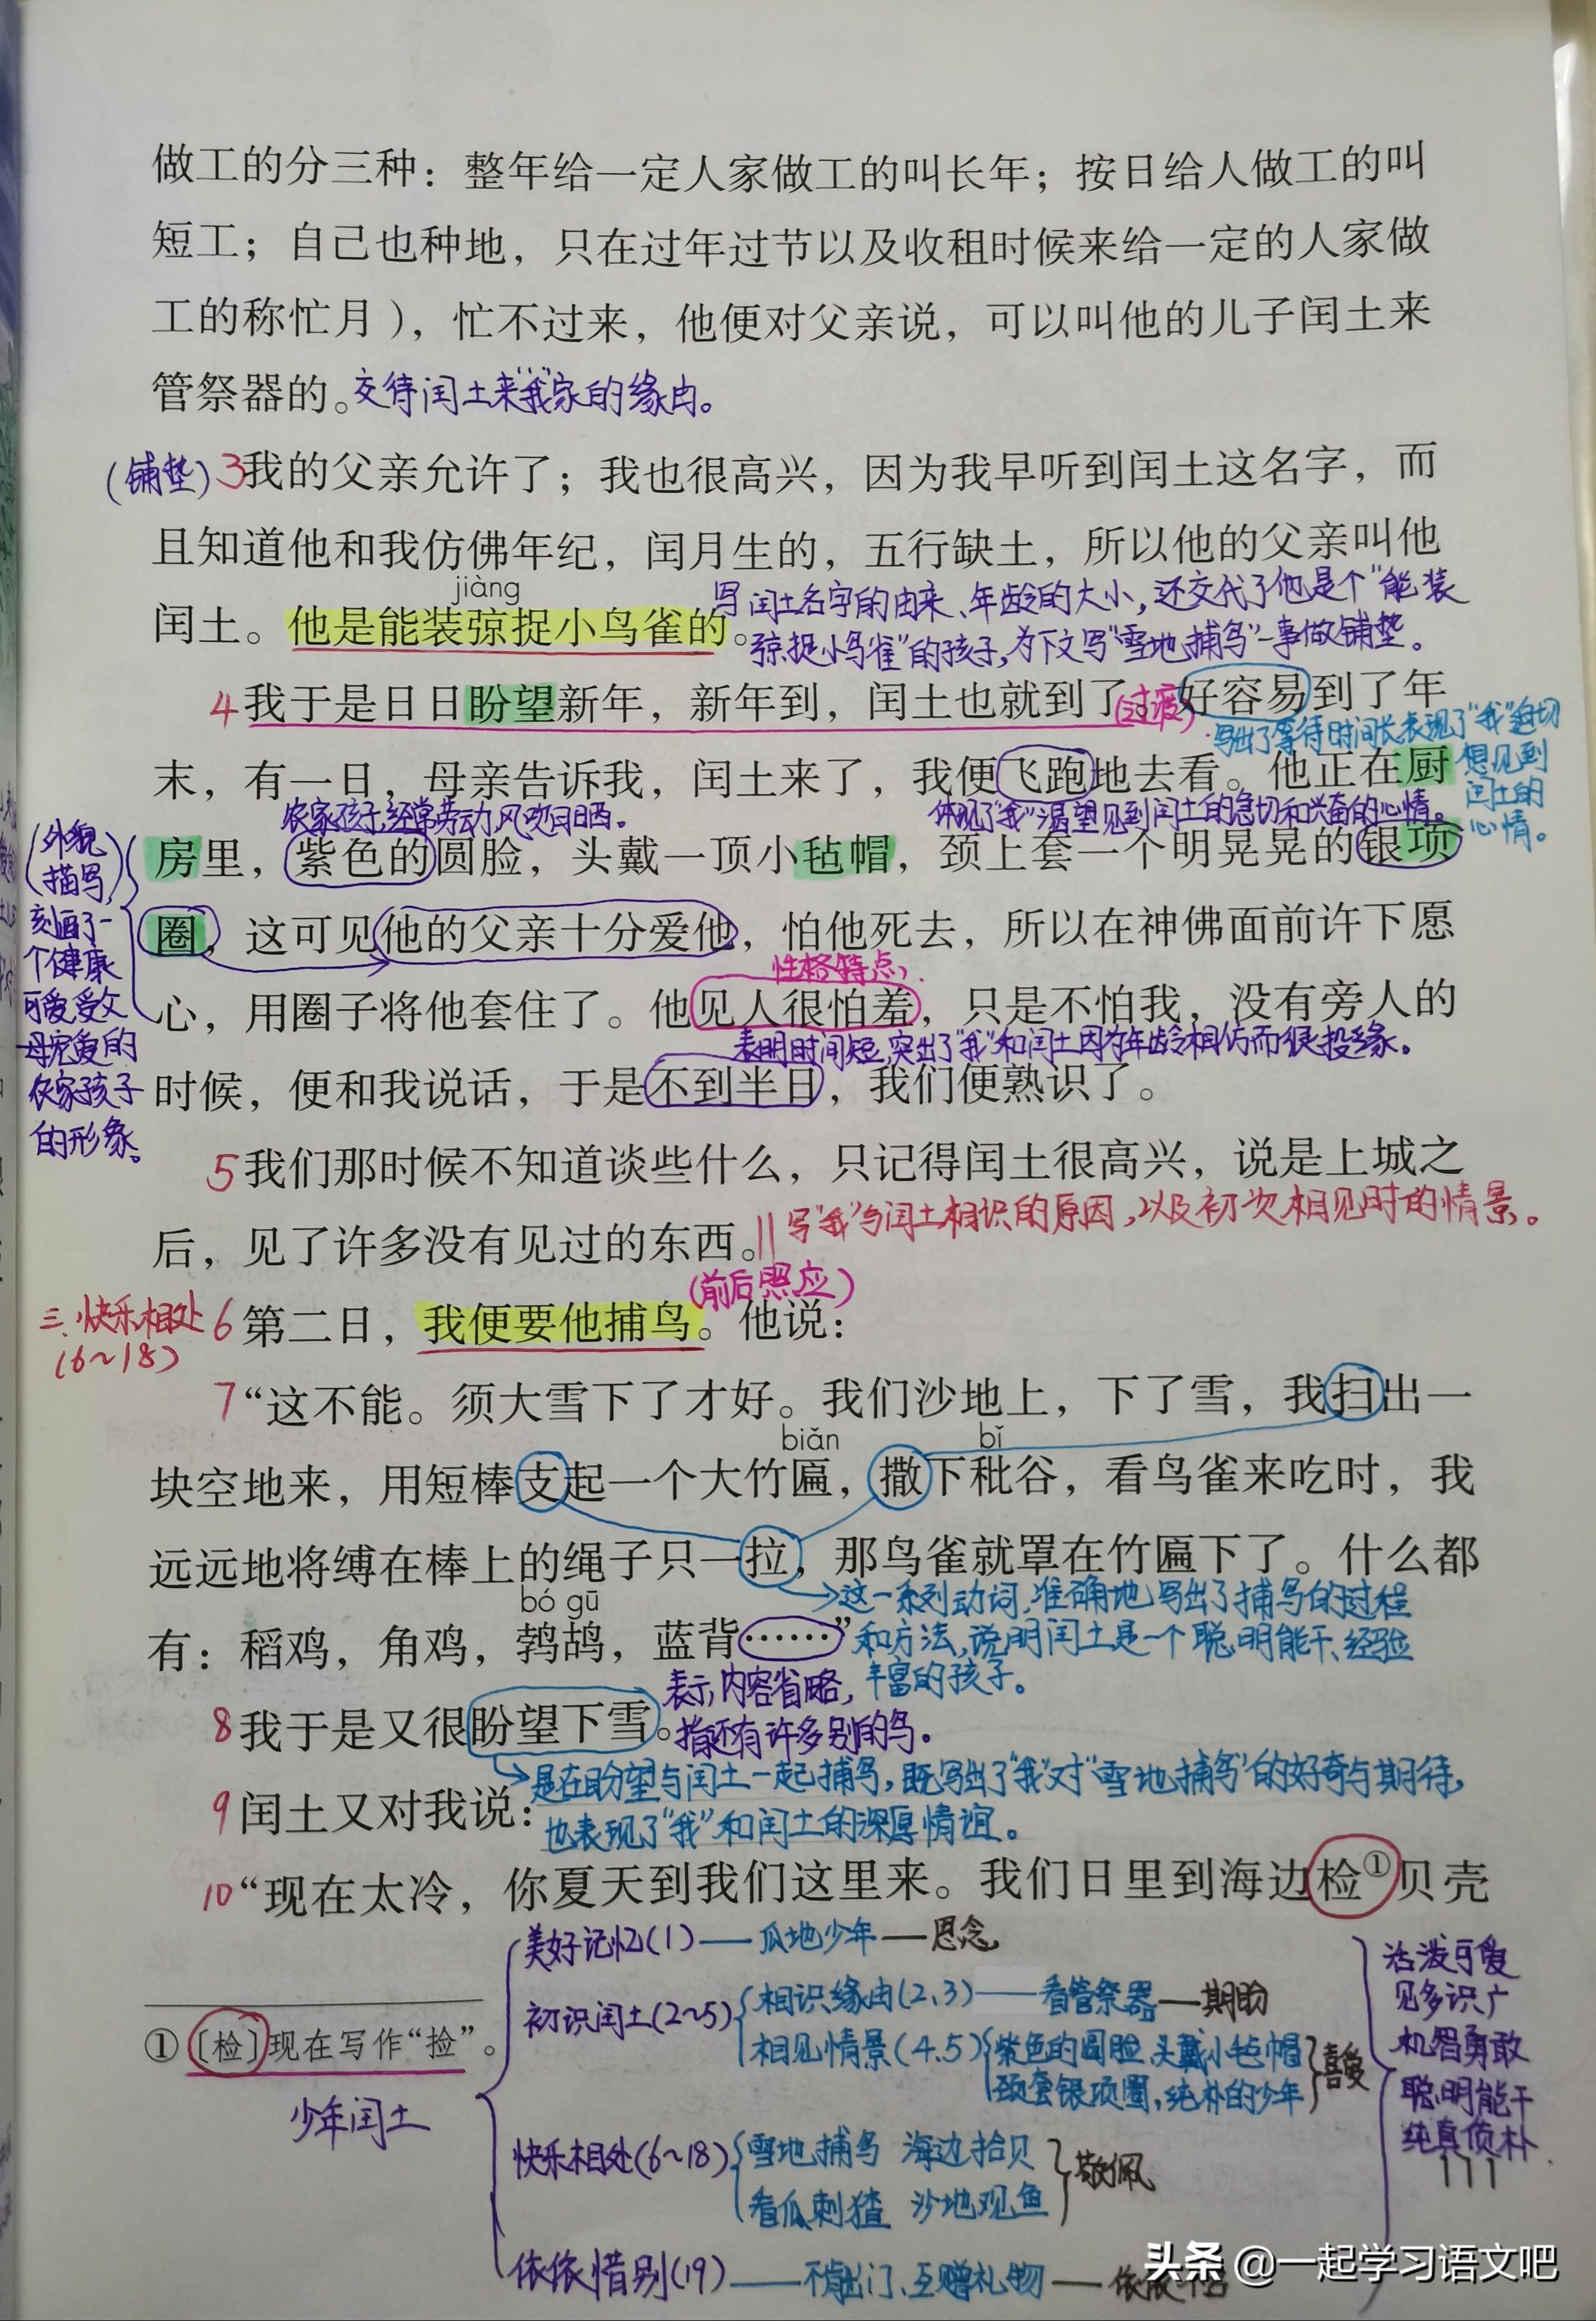 做工的分三种：整年给一定人家做工的叫长年；按日给人做工的叫
短工；自己也种地，只在过年过节以及收租时候来给一定的人家做
工的称忙月），忙不过来，他便对父亲说，可以叫他的儿子闰土来
管祭器的。交待闰土来“我”家的缘由。
（铺垫）3我的父亲允许了；我也很高兴，因为我早听到闰土这名字，而
且知道他和我仿佛年纪，闰月生的，五行缺土，所以他的父亲叫他
jiàng
闰土。他是能装弶捉小鸟雀的。
写闰土名字的由来、年龄的大小，还交代了他是个“能装
弶捉小鸟雀”的孩子，为下文写“雪地捕鸟”一事做铺垫。
4我于是日日盼望新年，新年到，闰土也就到了。（过渡）好容易到了年
写出了等待时间长表现了“我”迫切
想见到
闰土的
心情。
末，有一日，母亲告诉我，闰土来了，我便飞跑地去看。他正在厨
农家孩子，经常劳动，风吹日晒。
体现了“我”渴望见到闰土的急切和兴奋的心情。
（外貌
描写）
刻画了一
个健康
可爱受父
母宠爱的
农家孩子
的形象。
房里，紫色的圆脸，头戴一顶小毡帽，颈上套一个明晃晃的银项
圈，这可见他的父亲十分爱他，怕他死去，所以在神佛面前许下愿
性格特点
心，用圈子将他套住了。他见人很怕羞，只是不怕我，没有旁人的
表明时间短，突出了“我”和闰土因为年龄相仿而很投缘。
时候，便和我说话，于是不到半日，我们便熟识了。
5我们那时候不知道谈些什么，只记得闰土很高兴，说是上城之
后，见了许多没有见过的东西。‖写“我”与闰土相识的原因，以及初次相见时的情景。
（前后照应）
三、快乐相处
（6~18）
6第二日，我便要他捕鸟。他说：
7“这不能。须大雪下了才好。我们沙地上，下了雪，我扫出一
biǎn bǐ
块空地来，用短棒支起一个大竹匾，撒下秕谷，看鸟雀来吃时，我
远远地将缚在棒上的绳子只一拉，那鸟雀就罩在竹匾下了。什么都
bó gū
有：稻鸡，角鸡，鹁鸪，蓝背……”
这一系列动词，准确地写出了捕鸟的过程
和方法，说明闰土是一个聪明能干、经验
丰富的孩子。
表示内容省略，
指还有许多别的鸟。
8我于是又很盼望下雪。
是在盼望与闰土一起捕鸟，既写出了“我”对“雪地捕鸟”的好奇与期待，
也表现了“我”和闰土的深厚情谊。
9闰土又对我说：
10“现在太冷，你夏天到我们这里来。我们日里到海边检①贝壳
①〔检〕现在写作“捡”。
少年闰土
美好记忆（1）——瓜地少年——思念
初识闰土（2~5）
相识缘由（2、3）——看管祭器——期盼
相见情景（4、5）
紫色的圆脸、头戴小毡帽
颈套银项圈，纯朴的少年
喜爱
快乐相处（6~18）
雪地捕鸟 海边拾贝
看瓜刺猹 沙地观鱼
敬佩
依依惜别（19）——不肯出门、互赠礼物——依依
活泼可爱
见多识广
机智勇敢
聪明能干
纯真质朴
111
头条 @一起学习语文吧